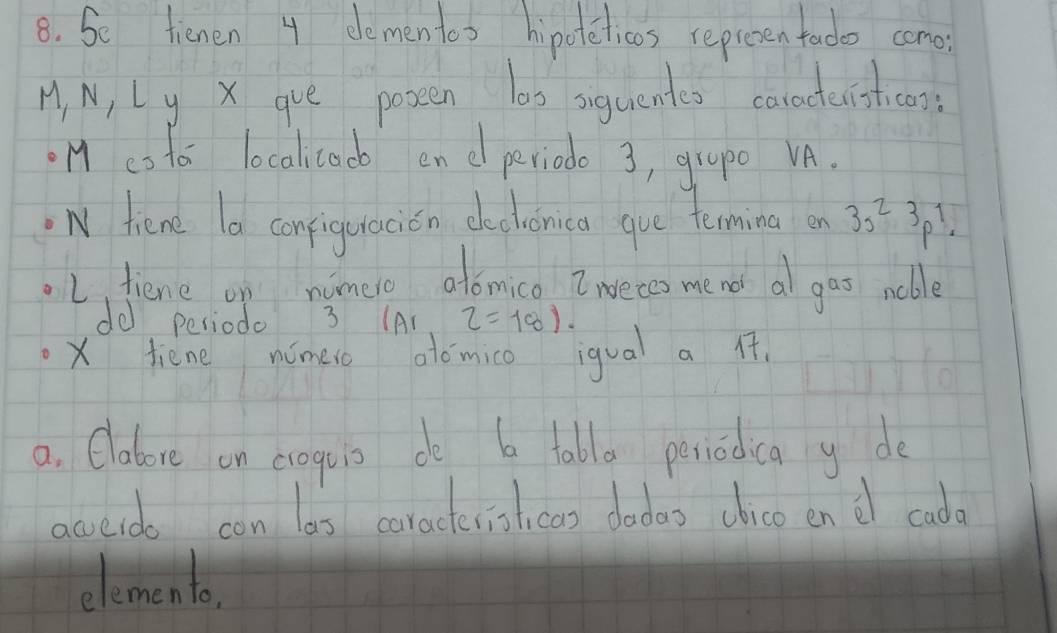 8. Se tienen 4 elementos hipotéticos representados como:
M, N, L y X que poseen las siguientes características:
• M está localizado en el periodo 3, grupo VA.
• N tiene la configuración electrónica que termina en 3s² 3p¹.
• L tiene un número atómico 2 veces menor al gas noble
del periodo 3 (Ar, Z=18).
• X tiene número atómico igual a 17.
a. Elabore un croquis de la tabla periódica y de
acuerdo con las características dadas ubico en él cada
elemento.